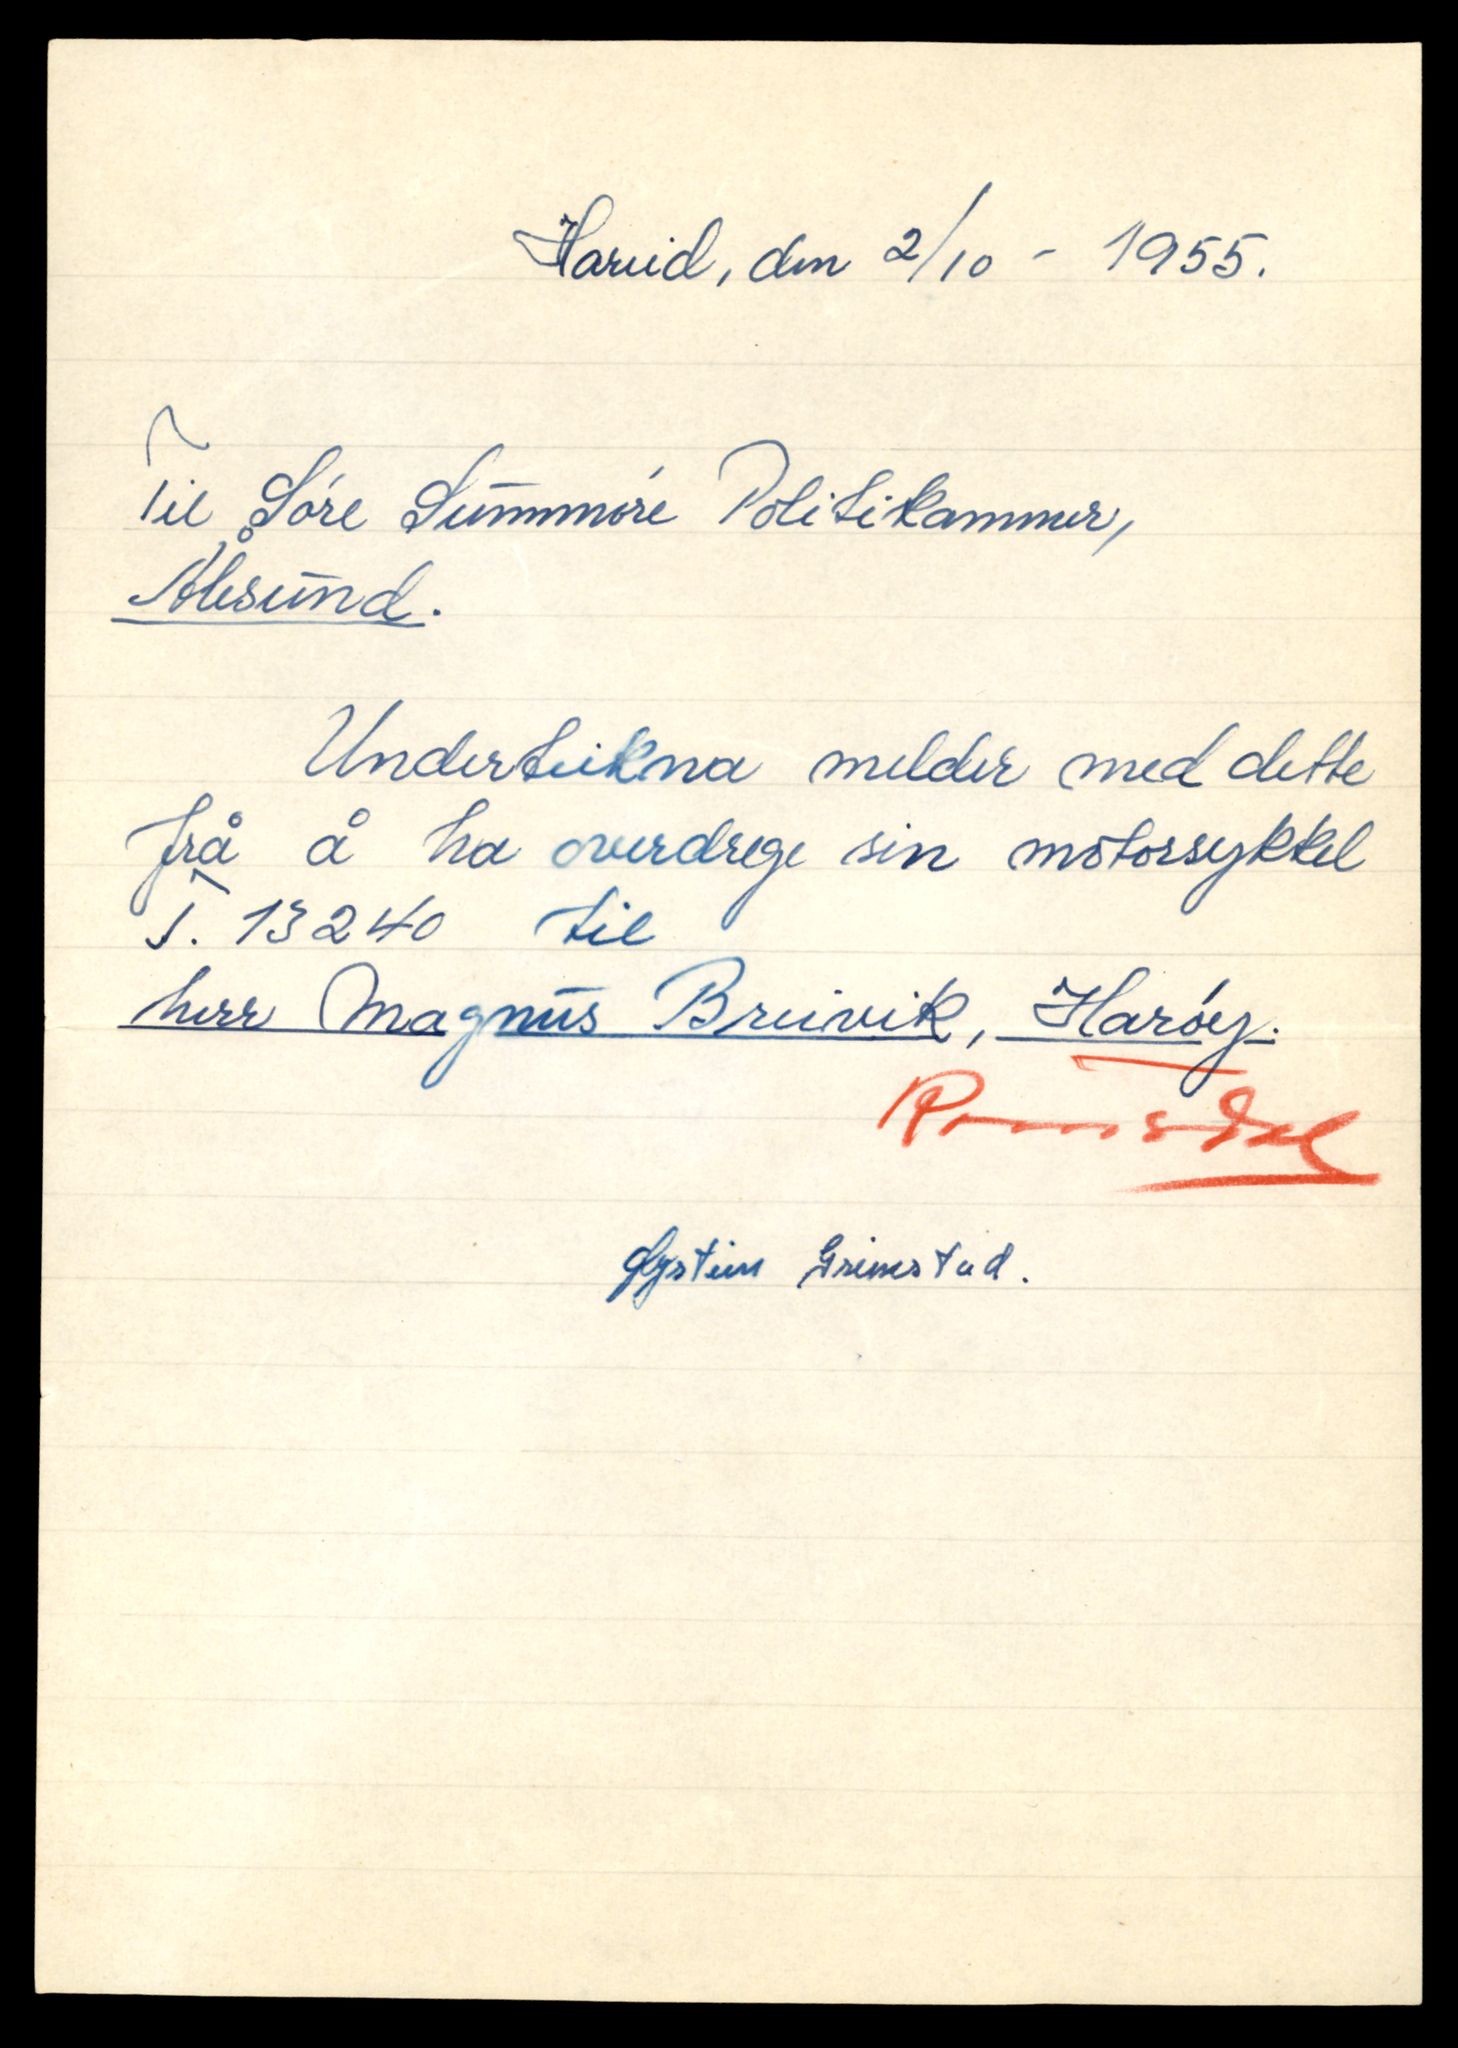 Hareid, den 2/10 - 1955.
Til Søre Sunnmøre Politikammer,
Ålesund.
Underteikna melder med dette
frå å ha overdrege sin motorsykkel
T. 13240 til
herr Magnus Breivik, Harøy.
Romsdal
Øystein Grimstad.